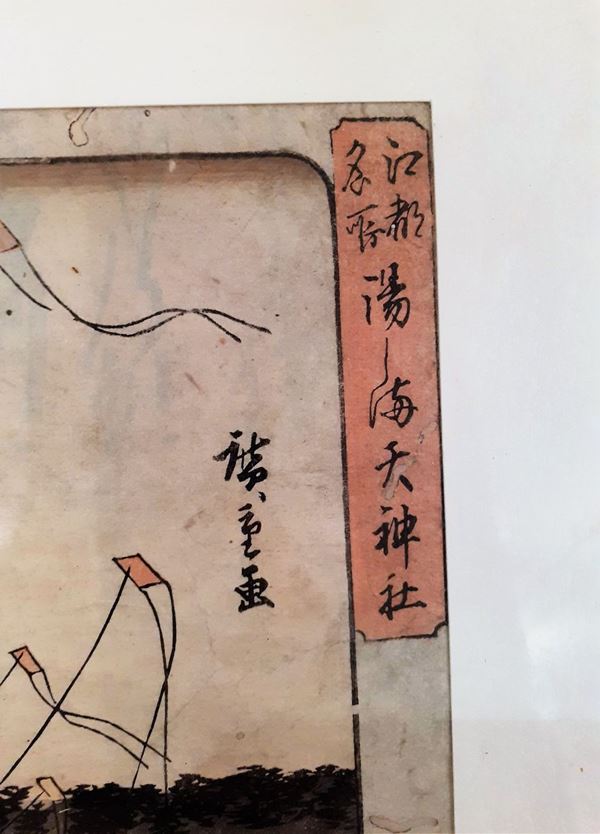 江都
名所
湯しま天神社
廣重画